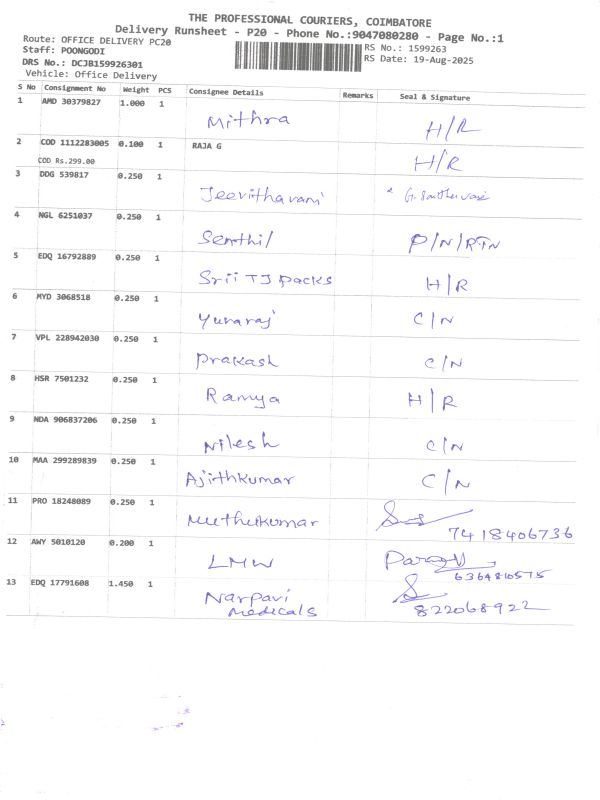 THE PROFESSIONAL COURIERS, COIMBATORE
Delivery Runsheet - P20 - Phone No.:9047080280 - Page No.:1
Route: OFFICE DELIVERY PC20
RS No.: 1599263
Staff: POONGODI
RS Date: 19-Aug-2025
DRS No.: DCJB159926301
Vehicle: Office Delivery
S No Consignment No Weight PCS Consignee Details Remarks Seal & Signature
1 AMD 30379827 1.000 1
Mithra H/R
2 COD 1112283005 0.100 1 RAJA G
COD Rs.299.00 H/R
3 DDG 539817 0.250 1
Jeevitharani
4 NGL 6251037 0.250 1
Senthil P/N/RTN
5 EDQ 16792889 0.250 1
Srii TJ packs H/R
6 MYD 3068518 0.250 1
Yuvaraj C/N
7 VPL 228942030 0.250 1
prakash C/N
8 HSR 7501232 0.250 1
Ramya H/R
9 NDA 906837206 0.250 1
Nilesh C/N
10 MAA 299289839 0.250 1
Ajithkumar C/N
11 PRO 18248089 0.250 1
Muthukumar
7418406736
12 AWY 5010120 0.200 1
LMW
6364810575
13 EDQ 17791608 1.450 1
Narpavi
Medicals 822068922